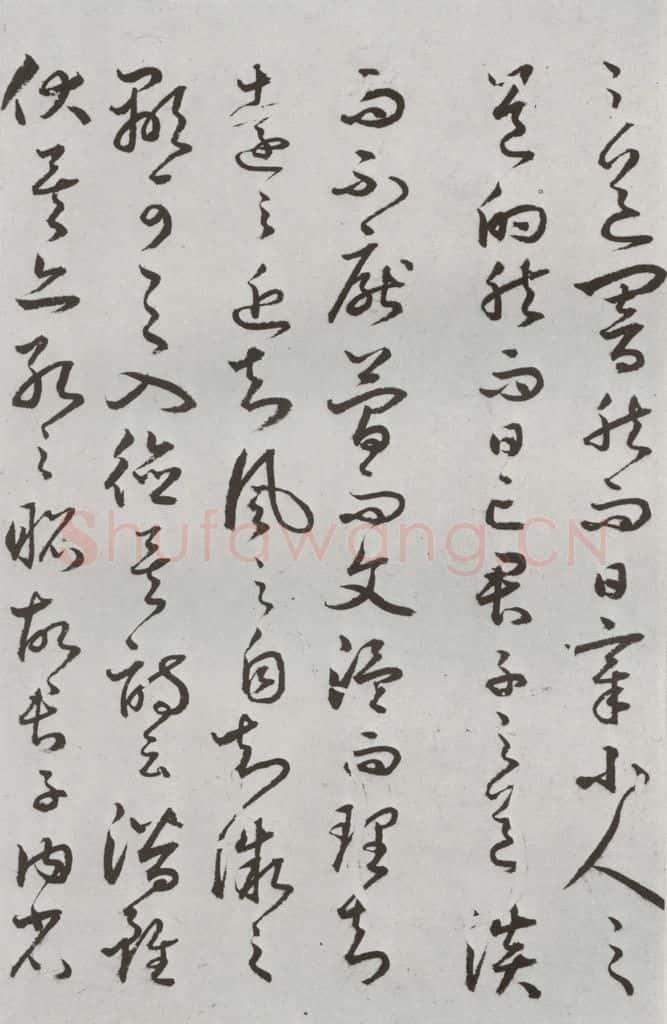 之道闇然而日章小人之
道的然而日亡君子之道淡
而不厭簡而文溫而理知
遠之近知風之自知微之
顯可與入德矣詩云潛雖
伏矣亦孔之昭故君子內省
Shufawang.CN